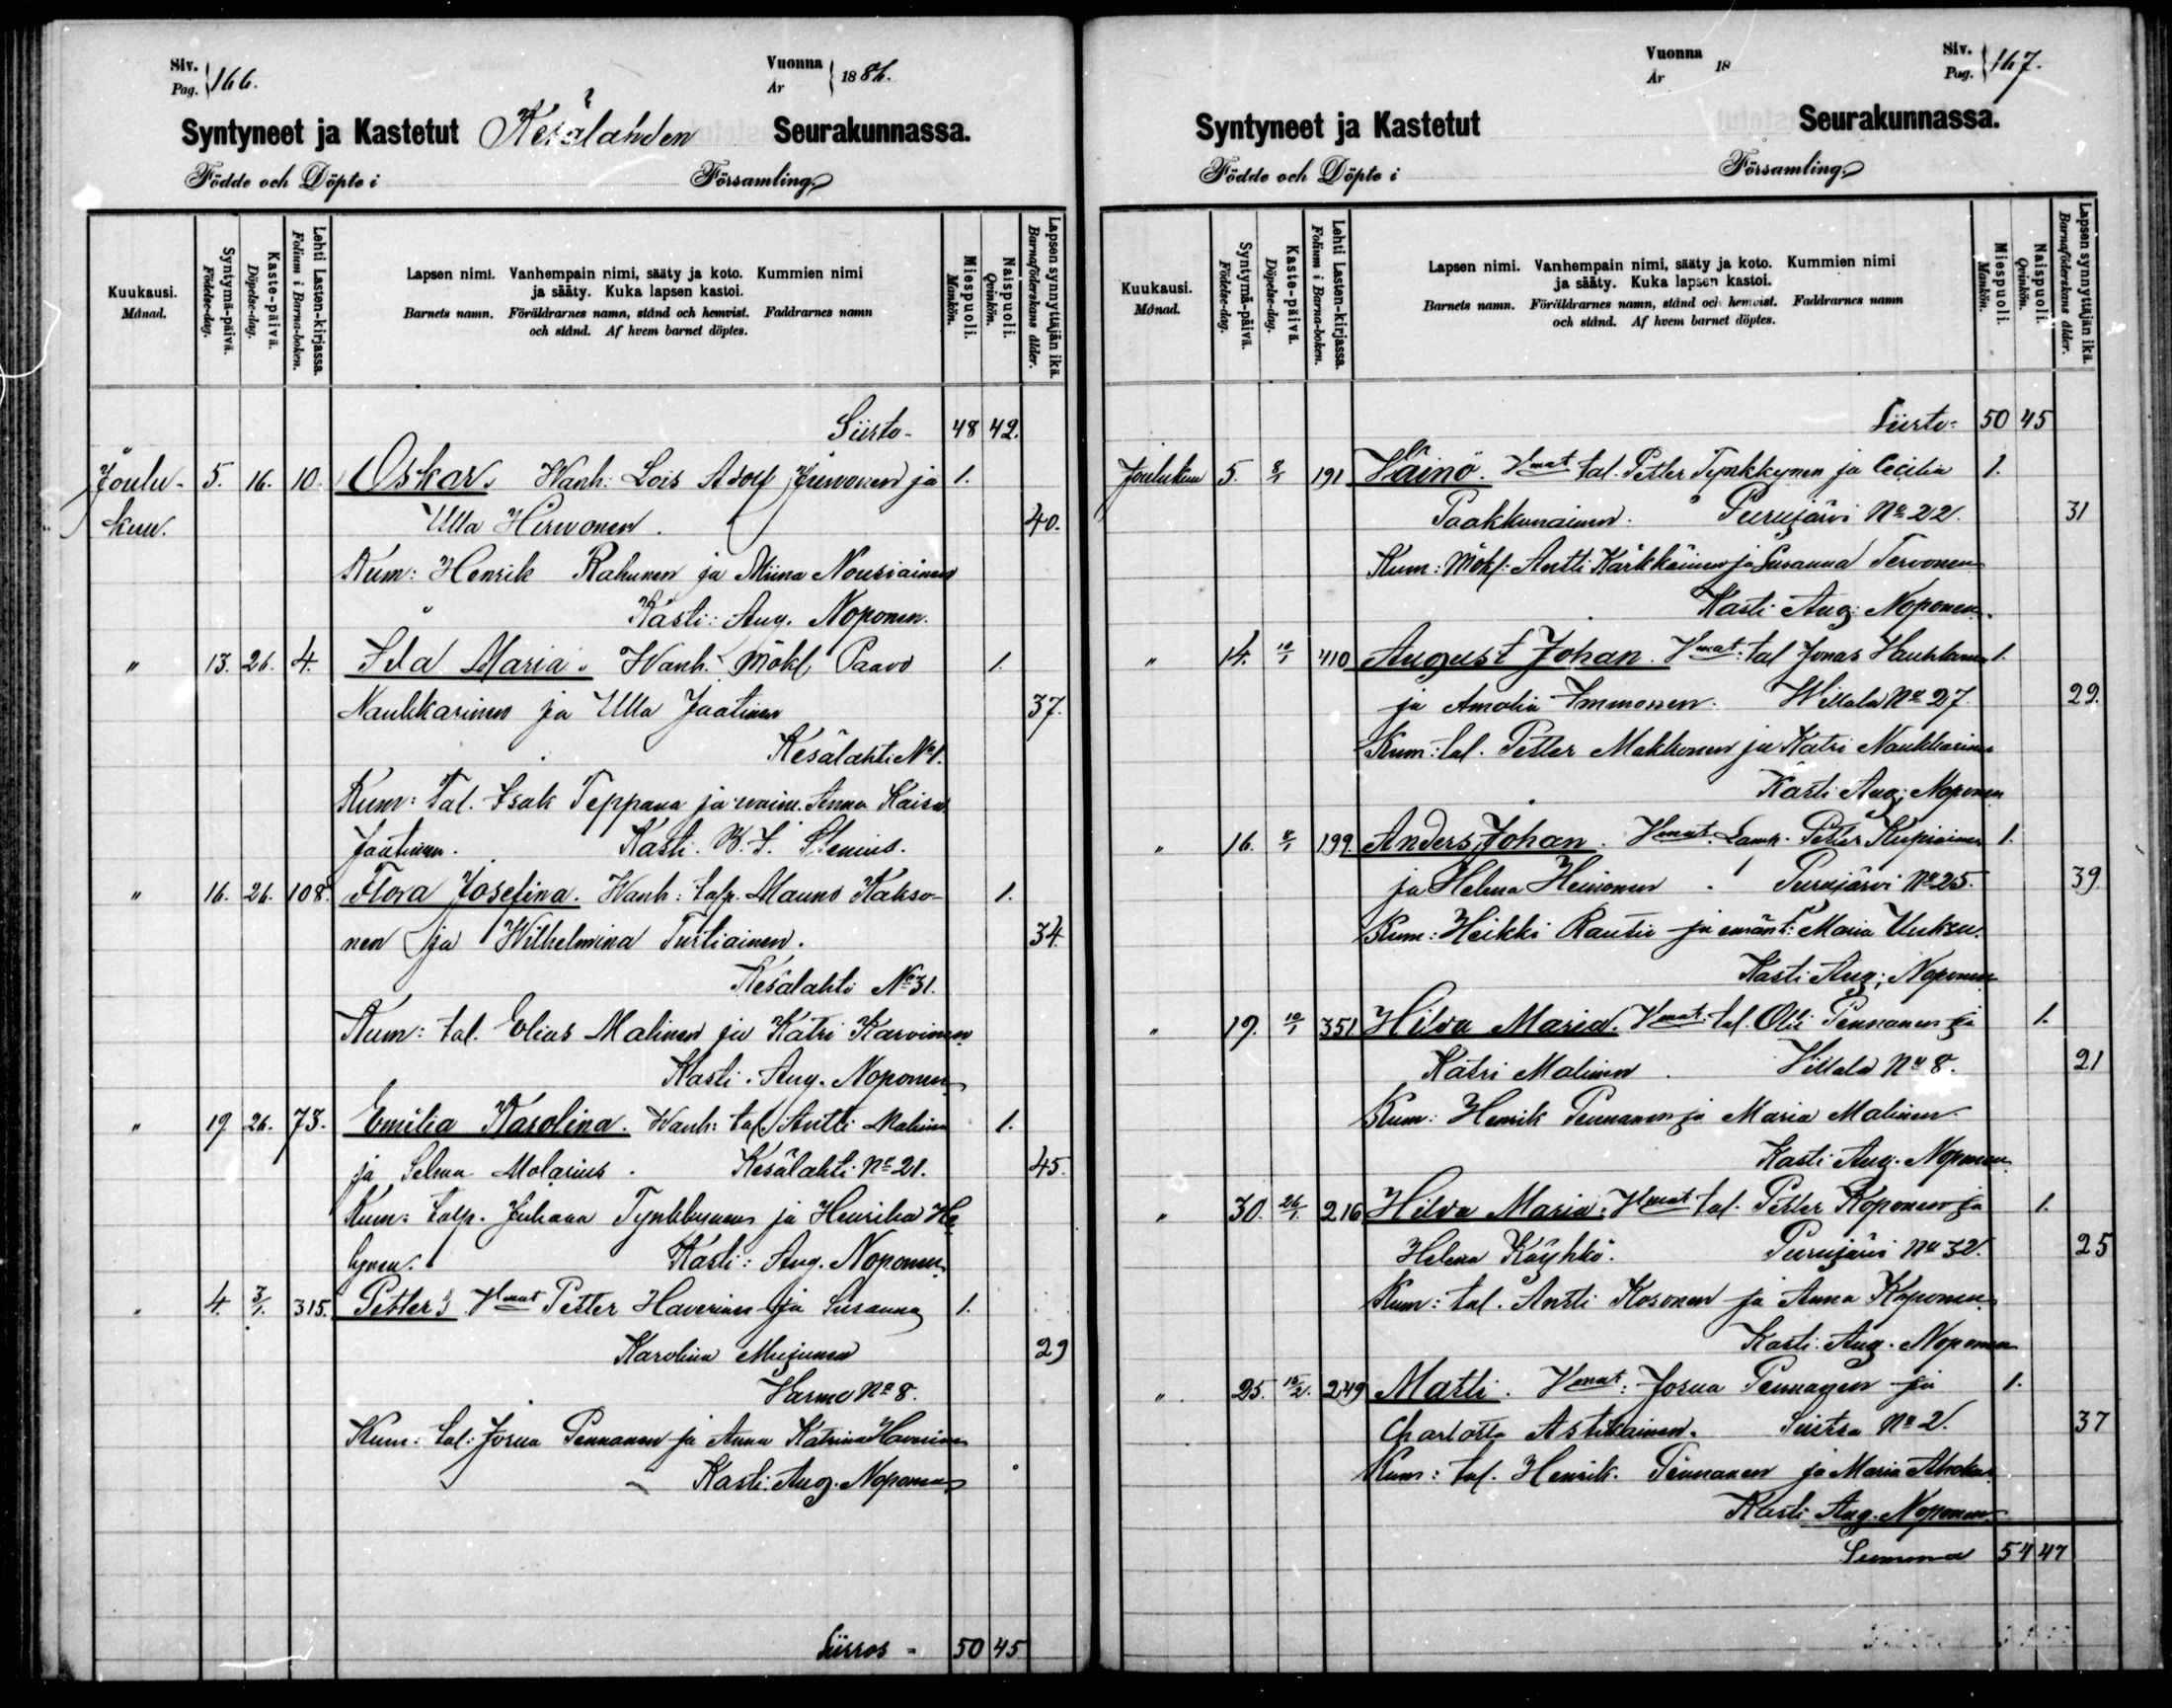 Siv. Pag. 166.
Vuonna År 1886.
Syntyneet ja Kastetut Kesälahden Seurakunnassa.
Födde och Döpte i Församling
Kuukausi. Månad.
Syntymä-päivä. Födelse-dag.
Kaste-päivä. Döpelse-dag.
Lehti Lasten-kirjassa. Folium i Barna-boken.
Lapsen nimi. Vanhempain nimi, sääty ja koto. Kummien nimi
ja sääty. Kuka lapsen kastoi.
Barnets namn. Föräldrarnes namn, stånd och hemvist. Faddrarnes namn
och stånd. Af hvem barnet döptes.
Miespuoli. Mankön.
Naispuoli. Qvinkön.
Lapsen synnyttäjän ikä. Barnaföderskans ålder.
Siirto- 48 42.
Joulu- 5. 16. 10. Oskar. Wanh: Lois Adolf ja 1.
kuu. Ulla Hirvonen. 40.
Kum: Henrik Rahunen ja Miina Nousiainen
Kasti: Aug. Noponen.
" 13. 26. 4. Ida Maria. Wanh. Mökl Paavo 1.
Naukkarinen ja Ulla Jaatinen 37.
Kesälahti No 1.
Kum: Tal. Isak Teppana ja waim. Anna Kaisa
Jaatinen. Kasti. Stenius.
" 16. 26. 108. Flora Josefina. Wanh: talp. Mauno Kakso- 1.
nen ja Wilhelmina Turtiainen. 34.
Kesälahti No 31.
Kum: tal. Elias Malinen ja Katri Karvinen
Kasti. Aug. Noponen
" 19. 26. 73. Emilia Karolina. Wanh: tal. Antti Malinen 1.
ja Selma Molarius. Kesälahti No 21. 45.
Kum: talp. Juhana Tynkkynen ja Henrika
Kasti: Aug. Noponen
" 4. 3/1. 315. Petter Vmat Petter Haverinen ja Susanna 1.
Karolina 29
Varmo No 8.
Kum: tal: Josua Pennanen ja Anna Katrina Haverinen
Kasti: Aug. Noponen
Siirros - 50 45
Vuonna År 18
Siv. Pag. 167.
Syntyneet ja Kastetut Seurakunnassa.
Födde och Döpte i Församling
Kuukausi. Månad.
Syntymä-päivä. Födelse-dag.
Kaste-päivä. Döpelse-dag.
Lehti Lasten-kirjassa. Folium i Barna-boken.
Lapsen nimi. Vanhempain nimi, sääty ja koto. Kummien nimi
ja sääty. Kuka lapsen kastoi.
Barnets namn. Föräldrarnes namn, stånd och hemvist. Faddrarnes namn
och stånd. Af hvem barnet döptes.
Miespuoli. Mankön.
Naispuoli. Qvinkön.
Lapsen synnyttäjän ikä. Barnaföderskans ålder.
Siirto- 50 45
Joulukuu 5. 8/1 191 Wäinö. Vmat tal. Petter Tynkkynen ja Cecilia 1.
Paakkunainen. Purujärvi No 22. 31
Kum: Mökl: Antti Kärkkäinen ja Susanna Tervonen
Kasti Aug: Noponen.
" 14. 10/1 410 August Johan. Vmat: tal Jonas 1.
ja Amalia Immonen. Willala No 27. 29.
Kum: tal. Petter Makkonen ja Katri Naukkarinen
Kasti Aug; Noponen
" 16. 8/1 199. Anders Johan. Vmat: Lamp. Petter Kupiainen 1.
ja Helena Heinonen. Purujärvi No 25. 39
Kum: Heikki Rautio ja emänt: Maria
Kasti Aug; Noponen
" 19. 10/1 351 Hilda Maria. Vmat: tal. Olli Pennanen ja 1.
Katri Malinen. Villala No 8. 21
Kum: Henrik Pennanen ja Maria Malinen
Kasti Aug. Noponen
" 30. 26/1. 216 Hilda Maria: Vmat tal. Petter Koponen ja 1.
Helena Käyhkö. Purujärvi No 32. 25
Kum: tal. Antti Kosonen ja Anna Koponen
Kasti: Aug. Noponen
" 25. 15/2. 249 Matti. Vmat: Josua Pennanen ja 1.
Charlotta Astikainen. No 2. 37
Kum: tal. Henrik. Pennanen ja Maria
Kasti Aug. Noponen
Summa 54 47